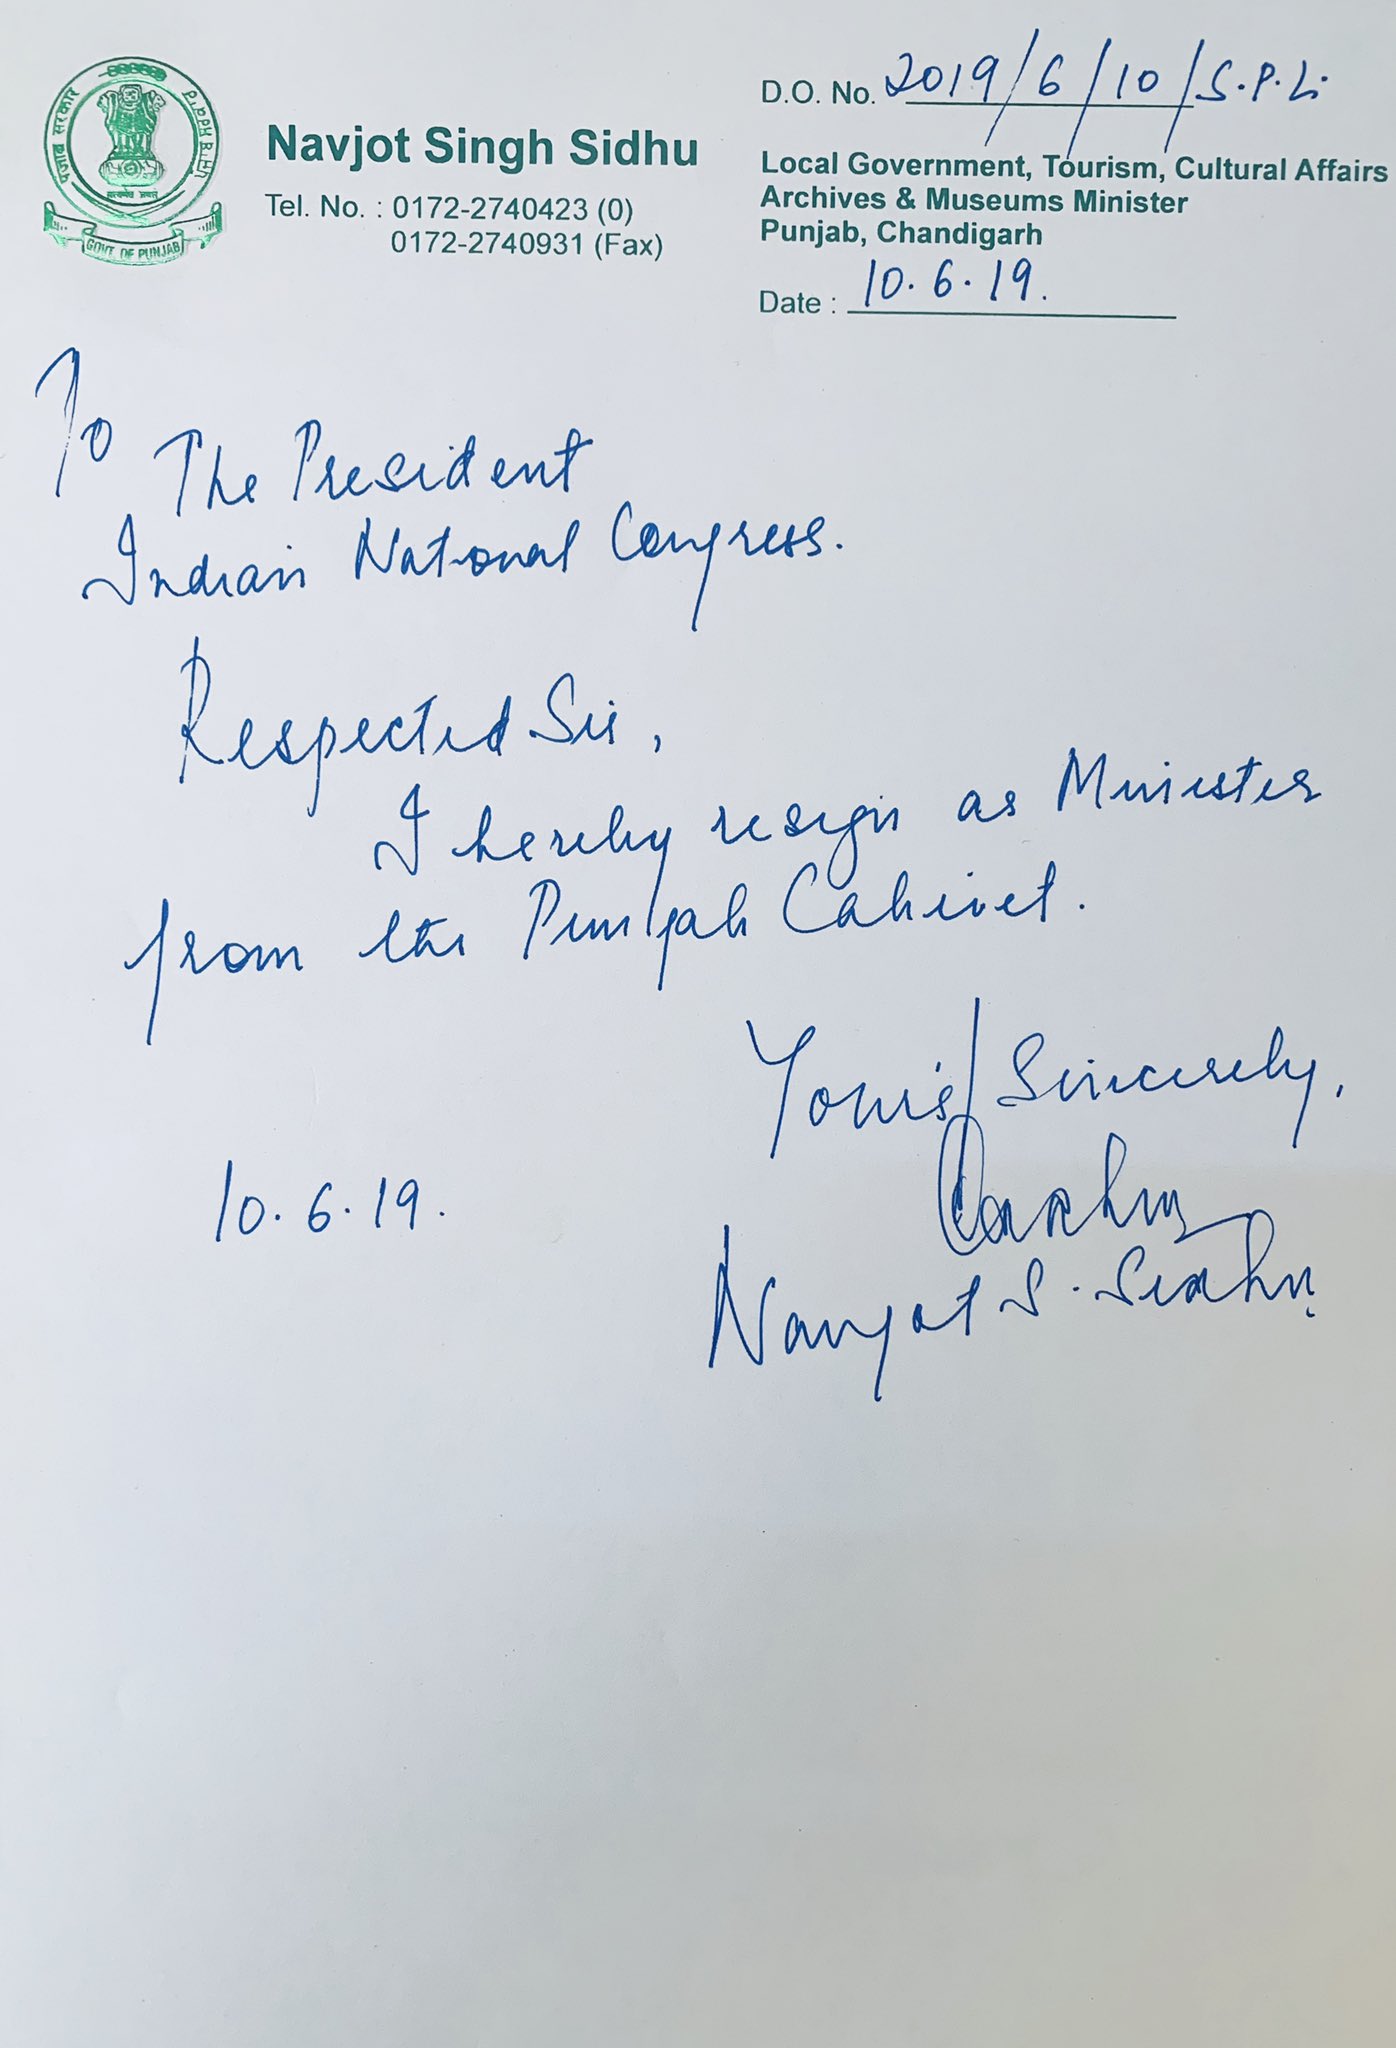 पंजाब सरकार
GOVT. OF PUNJAB
Navjot Singh Sidhu
Tel. No. : 0172-2740423 (0)
0172-2740931 (Fax)
D.O. No. 2019/6/10/S.P.L.
Local Government, Tourism, Cultural Affairs
Archives & Museums Minister
Punjab, Chandigarh
Date : 10.6.19.
To
The President
Indian National Congress.
Respected Sir,
I hereby resign as Minister
from the Punjab Cabinet.
Yours Sincerely,
10.6.19.
Navjot S. Sidhu